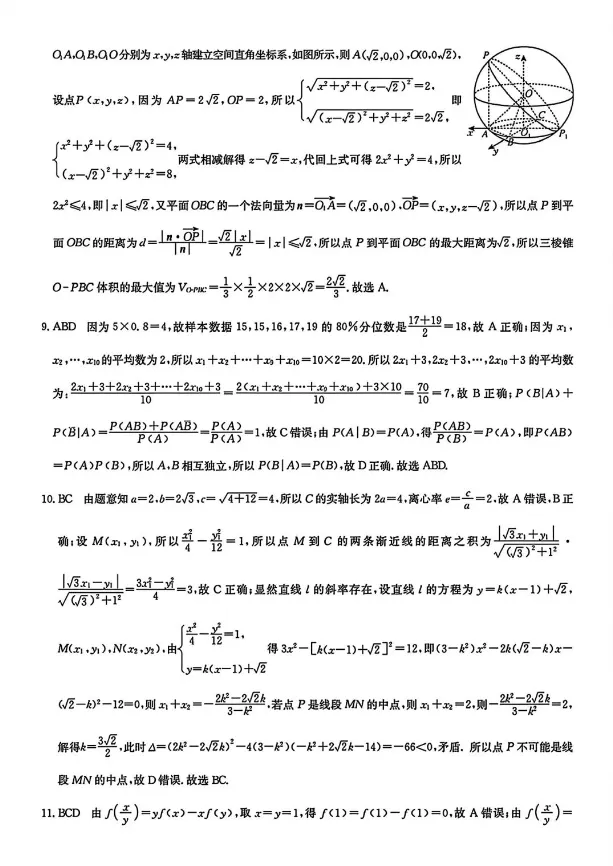 O₁A,O₁B,O₁O分别为 x,y,z 轴建立空间直角坐标系,如图所示,则 A(√2,0,0),O(0,0,√2),
设点P(x,y,z),因为 AP=2√2,OP=2,所以{√(x²+y²+(z-√2)²)=2, √((x-√2)²+y²+z²)=2√2, 即
{x²+y²+(z-√2)²=4, (x-√2)²+y²+z²=8, 两式相减解得 z-√2=x,代回上式可得 2x²+y²=4,所以
2x²≤4,即|x|≤√2,又平面 OBC 的一个法向量为 n=O₁A=(√2,0,0),OP=(x,y,z-√2),所以点 P 到平
面 OBC 的距离为 d=|n·OP|/|n|=√2|x|/√2=|x|≤√2,所以点 P 到平面 OBC 的最大距离为√2,所以三棱锥
O-PBC 体积的最大值为 V_{O-PBC}=1/3×1/2×2×2×√2=2√2/3.故选 A.
P
z
O
C
A
O₁
P₁
x
B
y
9. ABD 因为 5×0.8=4,故样本数据 15,15,16,17,19 的 80%分位数是(17+19)/2=18,故 A 正确;因为 x₁,
x₂,…,x₁₀的平均数为 2,所以 x₁+x₂+…+x₉+x₁₀=10×2=20.所以 2x₁+3,2x₂+3,…,2x₁₀+3 的平均数
为:(2x₁+3+2x₂+3+…+2x₁₀+3)/10=(2(x₁+x₂+…+x₉+x₁₀)+3×10)/10=70/10=7,故 B 正确;P(B|A)+
P(B̄|A)=(P(AB)+P(AB̄))/P(A)=P(A)/P(A)=1,故 C 错误;由 P(A|B)=P(A),得P(AB)/P(B)=P(A),即P(AB)
=P(A)P(B),所以 A,B 相互独立,所以 P(B|A)=P(B),故 D 正确.故选 ABD.
10. BC 由题意知 a=2,b=2√3,c=√(4+12)=4,所以 C 的实轴长为 2a=4,离心率 e=c/a=2,故 A 错误,B 正
确;设 M(x₁,y₁),所以x₁²/4-y₁²/12=1,所以点 M 到 C 的两条渐近线的距离之积为|√3x₁+y₁|/√((√3)²+1²)·
|√3x₁-y₁|/√((√3)²+1²)=(3x₁²-y₁²)/4=3,故 C 正确;显然直线 l 的斜率存在,设直线 l 的方程为 y=k(x-1)+√2,
M(x₁,y₁),N(x₂,y₂),由{x²/4-y²/12=1, y=k(x-1)+√2 得 3x²-[k(x-1)+√2]²=12,即(3-k²)x²-2k(√2-k)x-
(√2-k)²-12=0,则 x₁+x₂=-(2k²-2√2k)/(3-k²),若点 P 是线段 MN 的中点,则 x₁+x₂=2,则-(2k²-2√2k)/(3-k²)=2,
解得k=3√2/2,此时 Δ=(2k²-2√2k)²-4(3-k²)(-k²+2√2k-14)=-66<0,矛盾. 所以点 P 不可能是线
段 MN 的中点,故 D 错误.故选 BC.
11. BCD 由 f(x/y)=yf(x)-xf(y),取 x=y=1,得 f(1)=f(1)-f(1)=0,故 A 错误;由 f(x/y)=